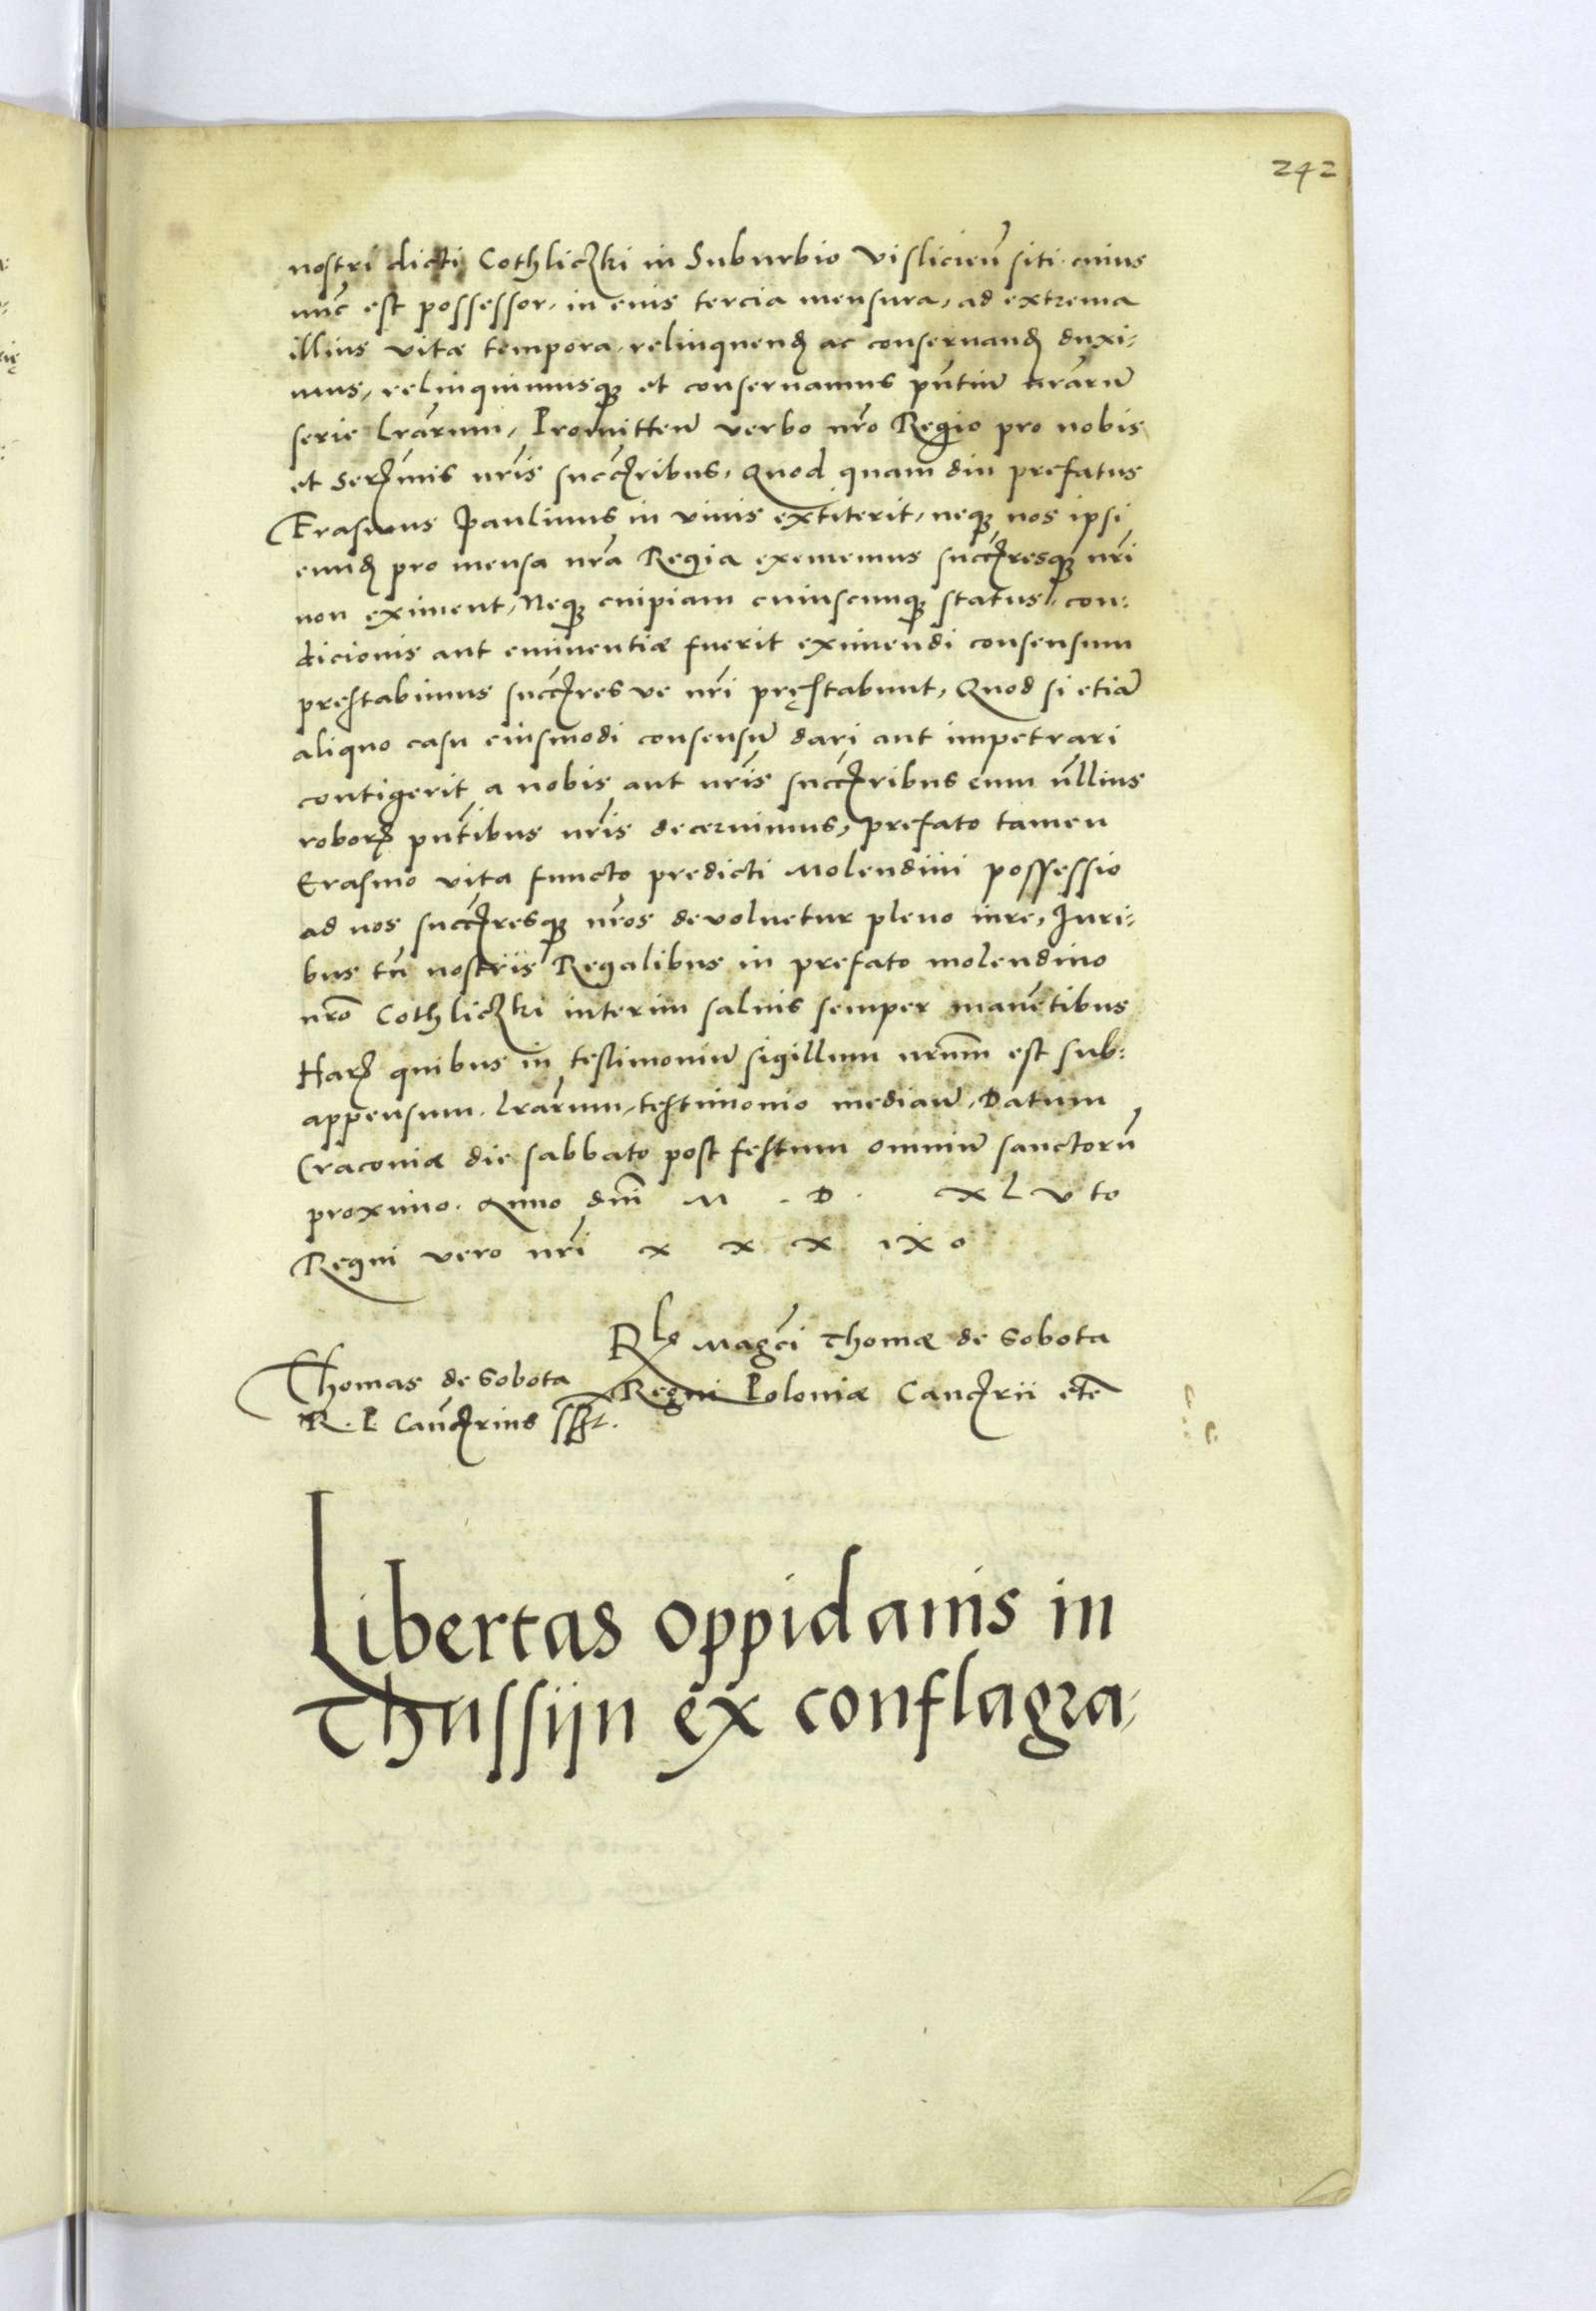 242
nostri dicti Cothliczki in Suburbio Vislicień siti. cuius
nūc est possessor. in eius tercia mensura, ad extrema
illius vitæ tempora, relinquend̛ ac conseruand̛ duxi-
mus, relinquimusq; et conseruamus pn̄tiū nr̄arū
serie lr̄arum, Promitteń verbo nr̄o Regio pro nobis
et Serꝫmis nr̄is succꝫribus, Quod quam diu prefatus
Erasmus Paulinus in viuis extiterit, neq; nos ipsi
eund̛ pro mensa nr̄a Regia eximemus succꝫresq; nr̄i
non eximent, Neq; cuipiam cuiuscunq; status, con-
dicionis aut eminentiæ fuerit eximendi consensum
prestabimus succꝫres ve nr̄i pręstabunt, Quod si etiā
aliquo casu eiusmodi consensū dari aut impetrari
contigerit a nobis aut nr̄is succꝫribus eum nūllius
roborꝫ pn̄tibus nr̄is decernimus, prefato tamen
Erasmo vita functo predicti Molendini possessio
ad nos succꝫresq; nr̄os deuoluetur pleno iure, Juri-
bus tn̄ nostriis Regalibus in prefato molendino
nr̄o Cothliczki interim saluis semper manētibus
Harꝫ quibus in testimoniū sigillum nr̄um est sub-
appensum. lr̄arum, testimonio mediań. Datum
Craconiæ die sabbato post festum omniū sanctorū
proximo. Anno dn̄i M . D . X L V to
Regni vero nr̄i x x x ix o
Rlo Magci Thomæ de Sobota
Regni Poloniæ Cancꝫrii etc̄
Thomas de Sobota
R. P. Cancꝫrius sst.
Libertas oppidanis in
Thussijn ex conflagra-